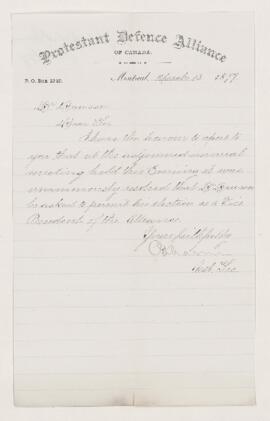 Protestant Defence Alliance
OF CANADA.
P. O. Box
Montreal, March 13 1877
Dr Dawson
Dear Sir
I have the honour to report to
you that at the adjourned annual
meeting held this Evening it was
unanimously resolved that Dr Dawson
be asked to permit his election as a Vice
President of the Alliance.
Yours faithfully
Sec